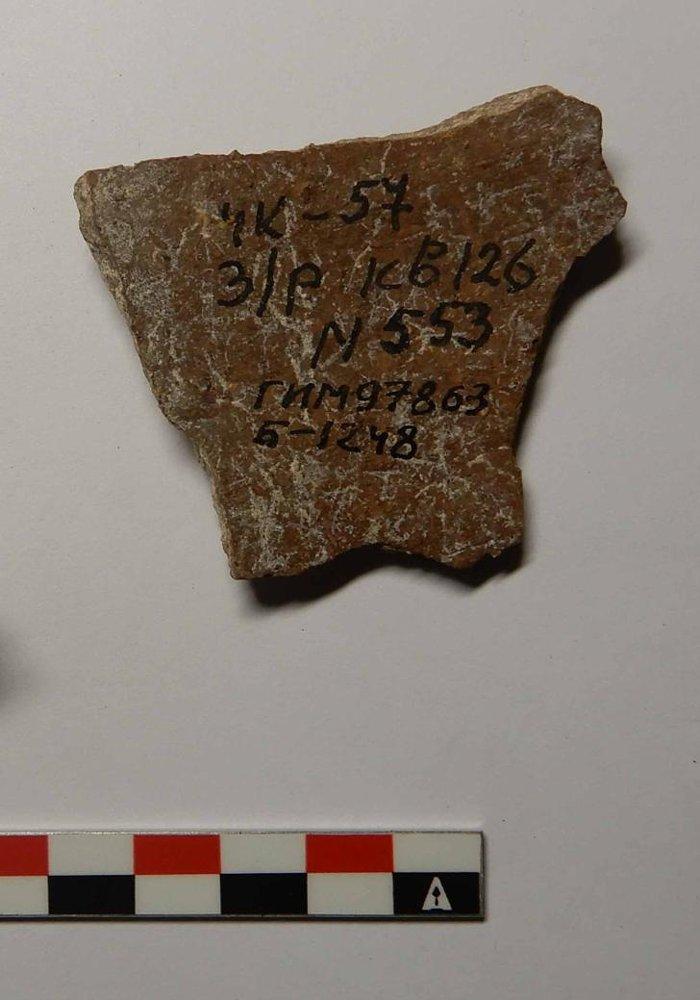 ЧК-57
З/р кв 126
N 553
ГИМ97863
Б-1248